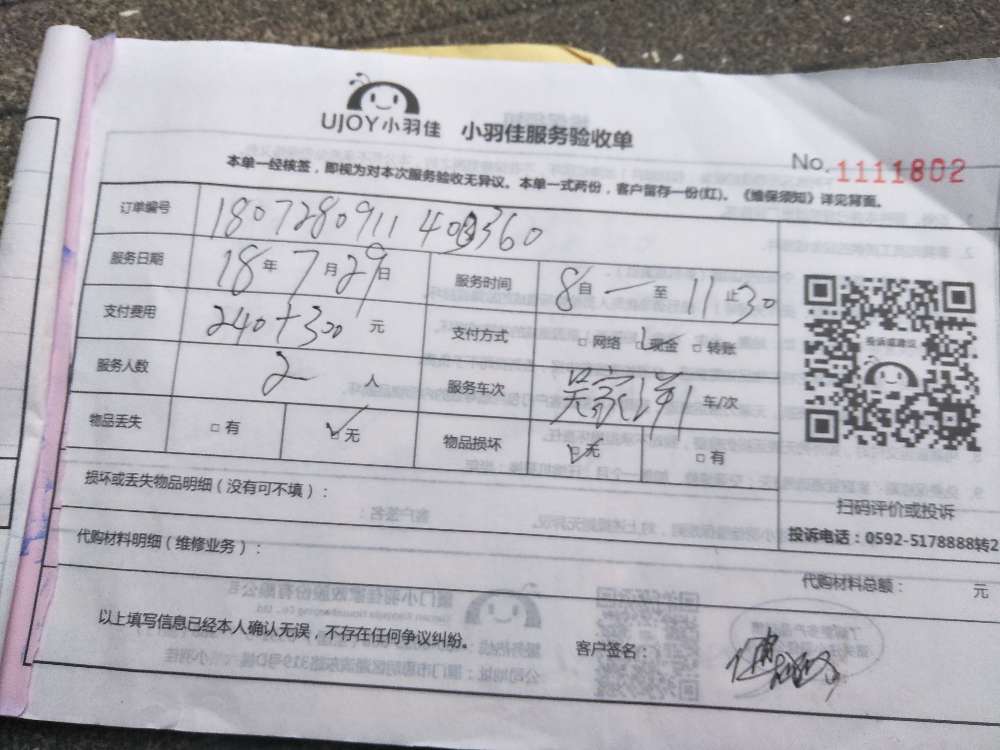 UJOY小羽佳 小羽佳服务验收单
No. 1111802
本单一经核签，即视为对本次服务验收无异议。本单一式两份，客户留存一份(红)。《维保须知》详见背面。
订单编号 180728091140
服务日期 18年7月29日 服务时间 8自一至11止30
支付费用 240+300元 支付方式 □网络 ☑现金 □转账
服务人数 2人 服务车次 吴家 车/次
物品丢失 □有 ☑无 物品损坏 ☑无 □有
投诉或建议
扫码评价或投诉
投诉电话：0592-5178888转2
损坏或丢失物品明细（没有可不填）：
代购材料明细（维修业务）：
代购材料总额： 元
以上填写信息已经本人确认无误，不存在任何争议纠纷。 客户签名：